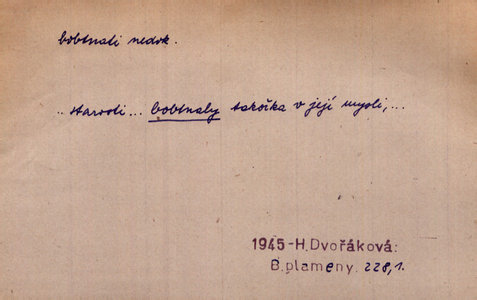 bobtnati nedok.
.. starosti... bobtnaly takřka v její mysli,...
1945-H.Dvořáková:
B.plameny. 228,1.